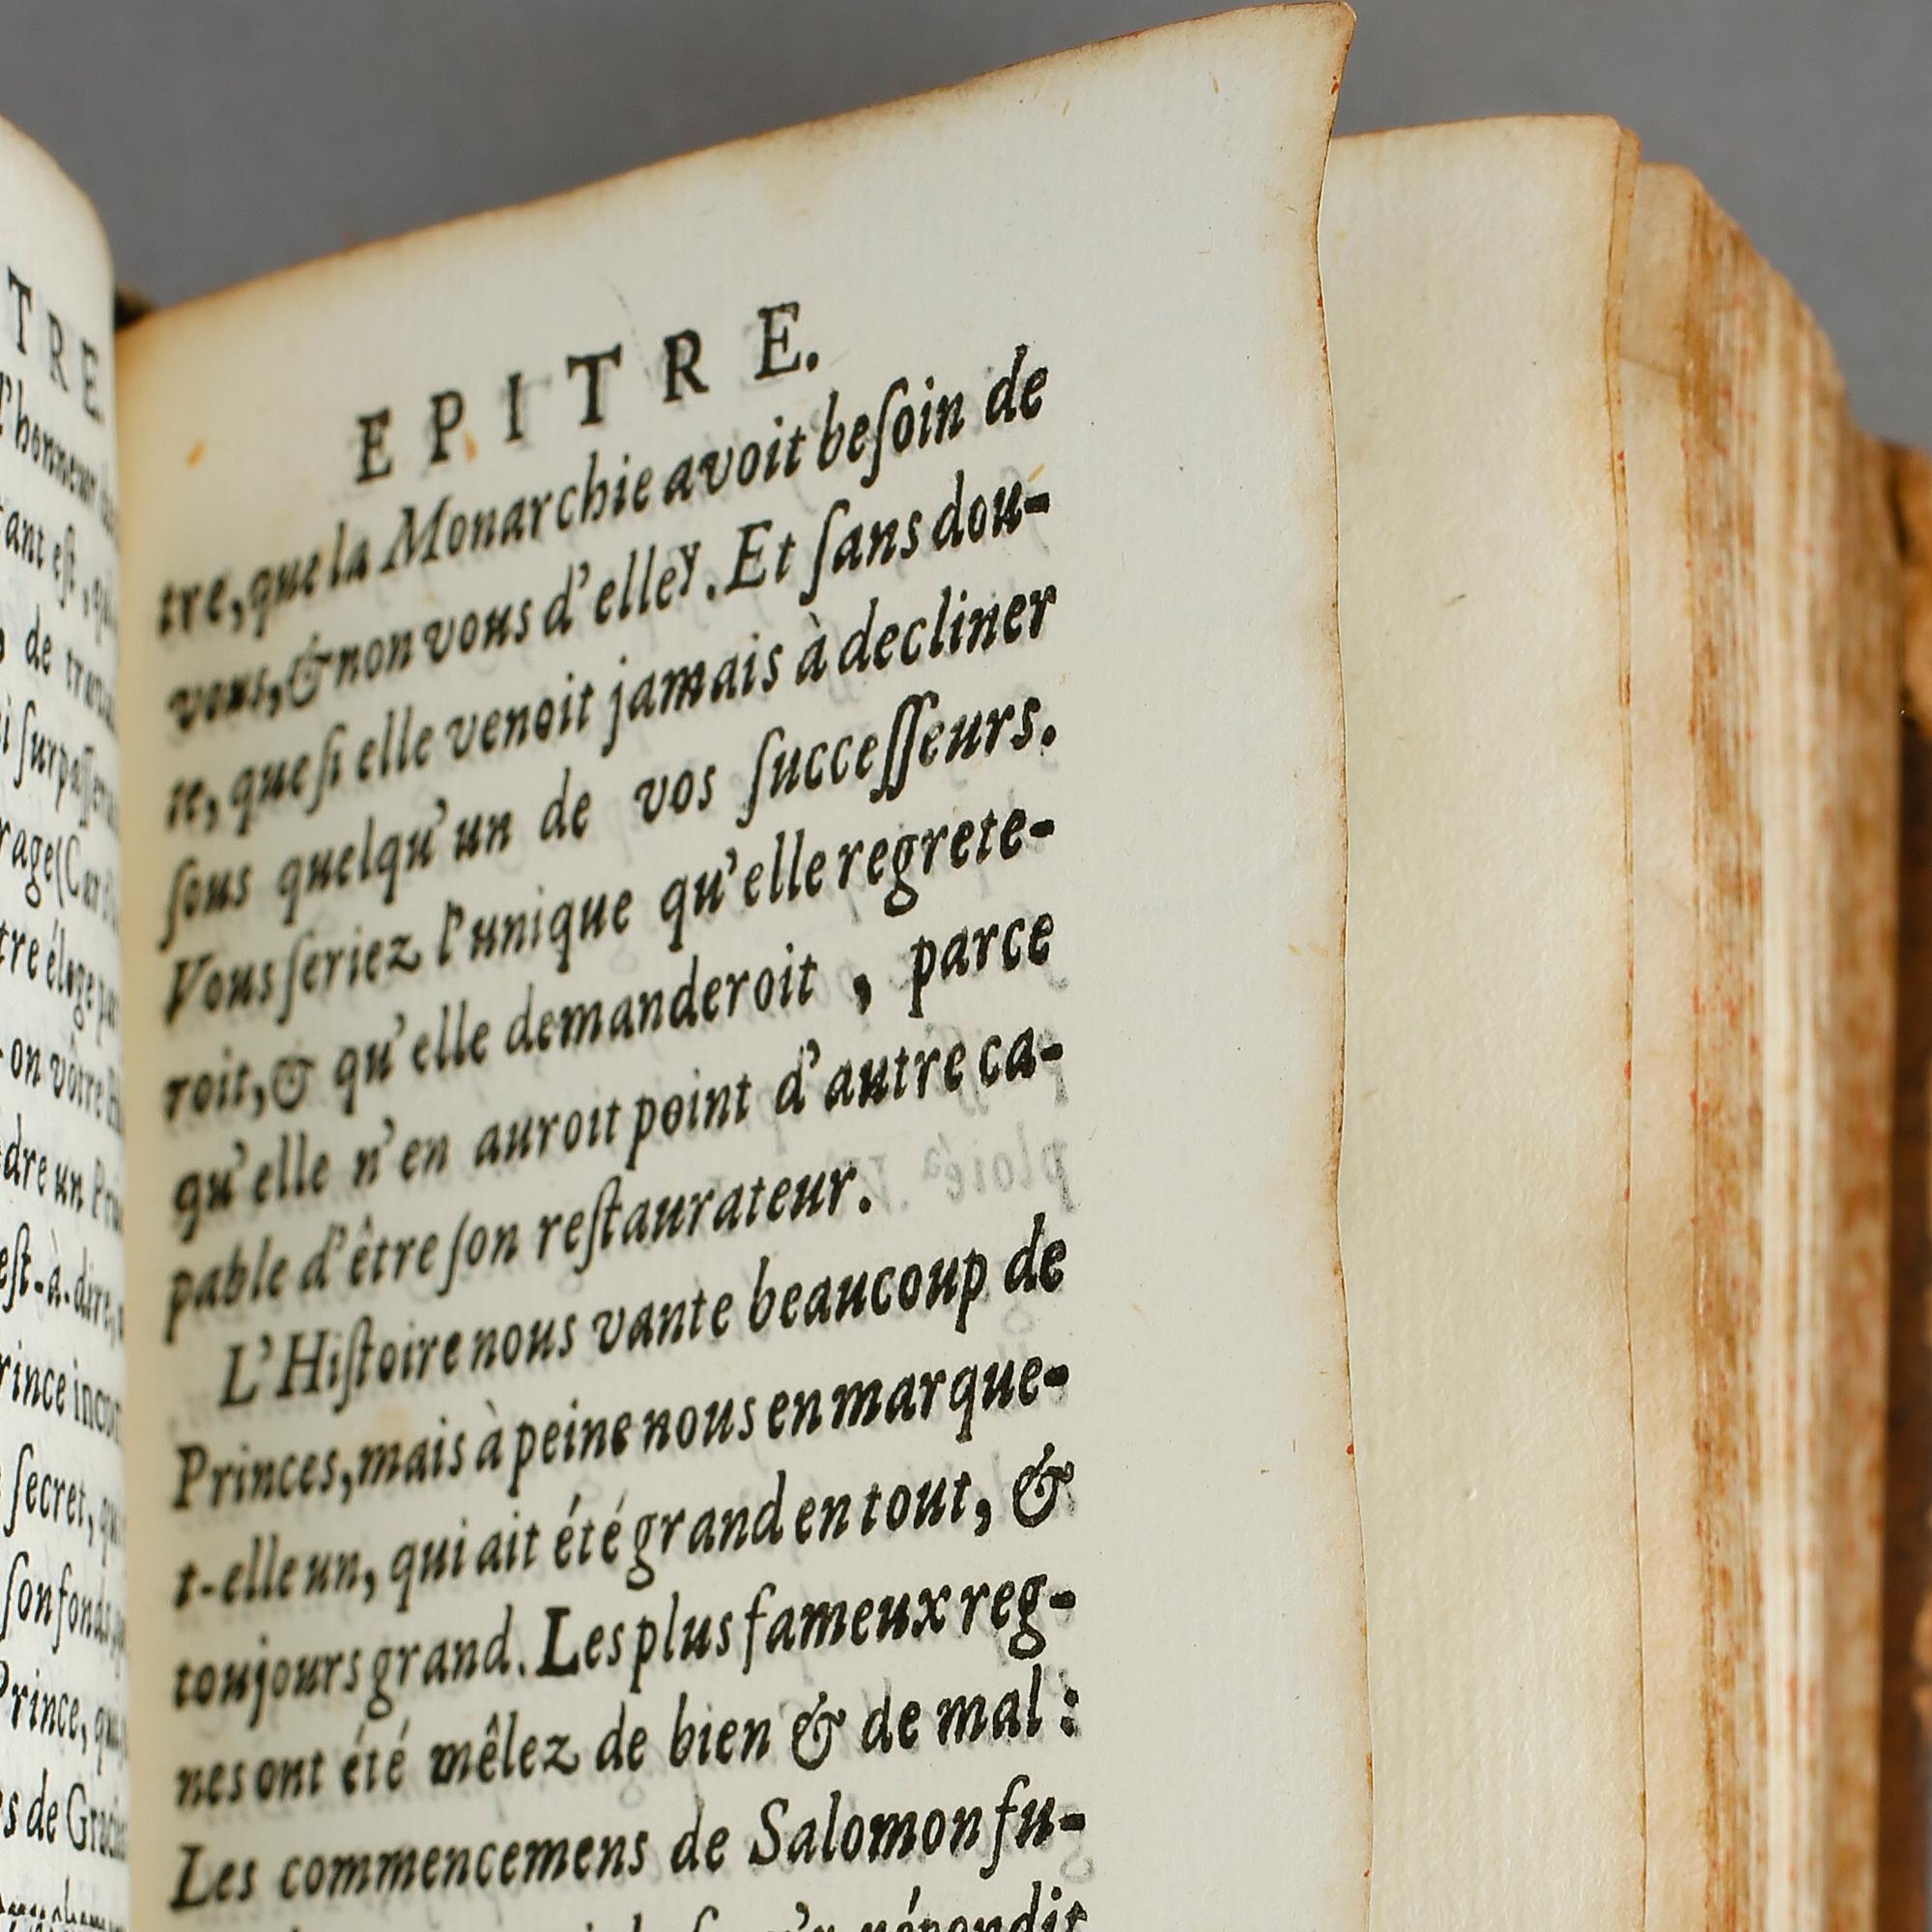 TRE.
l'honneur
tant est,
de
surpasser
rage
tre éloge par
on vôtre
dre un
est-à-dire,
rince
secret,
son fonds,
Prince,
s de
EPITRE.
tre, que la Monarchie avoit beſoin de
vous, & non vous d'elle y. Et ſans dou-
te, que ſi elle venoit jamais à decliner
ſous quelqu'un de vos ſucceſſeurs.
Vous ſeriez l'unique qu'elle regrete-
roit, & qu'elle demanderoit, parce
qu'elle n'en auroit point d'autre ca-
pable d'être ſon reſtaurateur.
L'Hiſtoire nous vante beaucoup de
Princes, mais à peine nous en marque-
t-elle un, qui ait été grand en tout, &
toujours grand. Les plus fameux reg-
nes ont été mêlez de bien & de mal:
Les commencemens de Salomon fu-
répondit